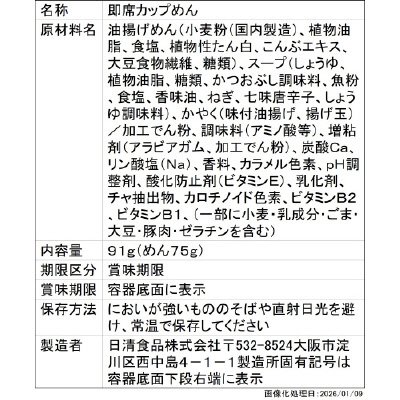 名称 即席カップめん
原材料名 油揚げめん(小麦粉(国内製造)、植物油
脂、食塩、植物性たん白、こんぶエキス、
大豆食物繊維、糖類)、スープ(しょうゆ、
植物油脂、糖類、かつおぶし調味料、魚粉
、食塩、香味油、ねぎ、七味唐辛子、しょう
ゆ調味料)、かやく(味付油揚げ、揚げ玉)
/加工でん粉、調味料(アミノ酸等)、増粘
剤(アラビアガム、加工でん粉)、炭酸Ca、
リン酸塩(Na)、香料、カラメル色素、pH調
整剤、酸化防止剤(ビタミンE)、乳化剤、
チャ抽出物、カロチノイド色素、ビタミンB2
、ビタミンB1、(一部に小麦・乳成分・ごま・
大豆・豚肉・ゼラチンを含む)
内容量 91g(めん75g)
期限区分 賞味期限
賞味期限 容器底面に表示
保存方法 においが強いもののそばや直射日光を避
け、常温で保存してください
製造者 日清食品株式会社〒532-8524大阪市淀
川区西中島4-1-1製造所固有記号は
容器底面下段右端に表示
画像化処理日:2026/01/09